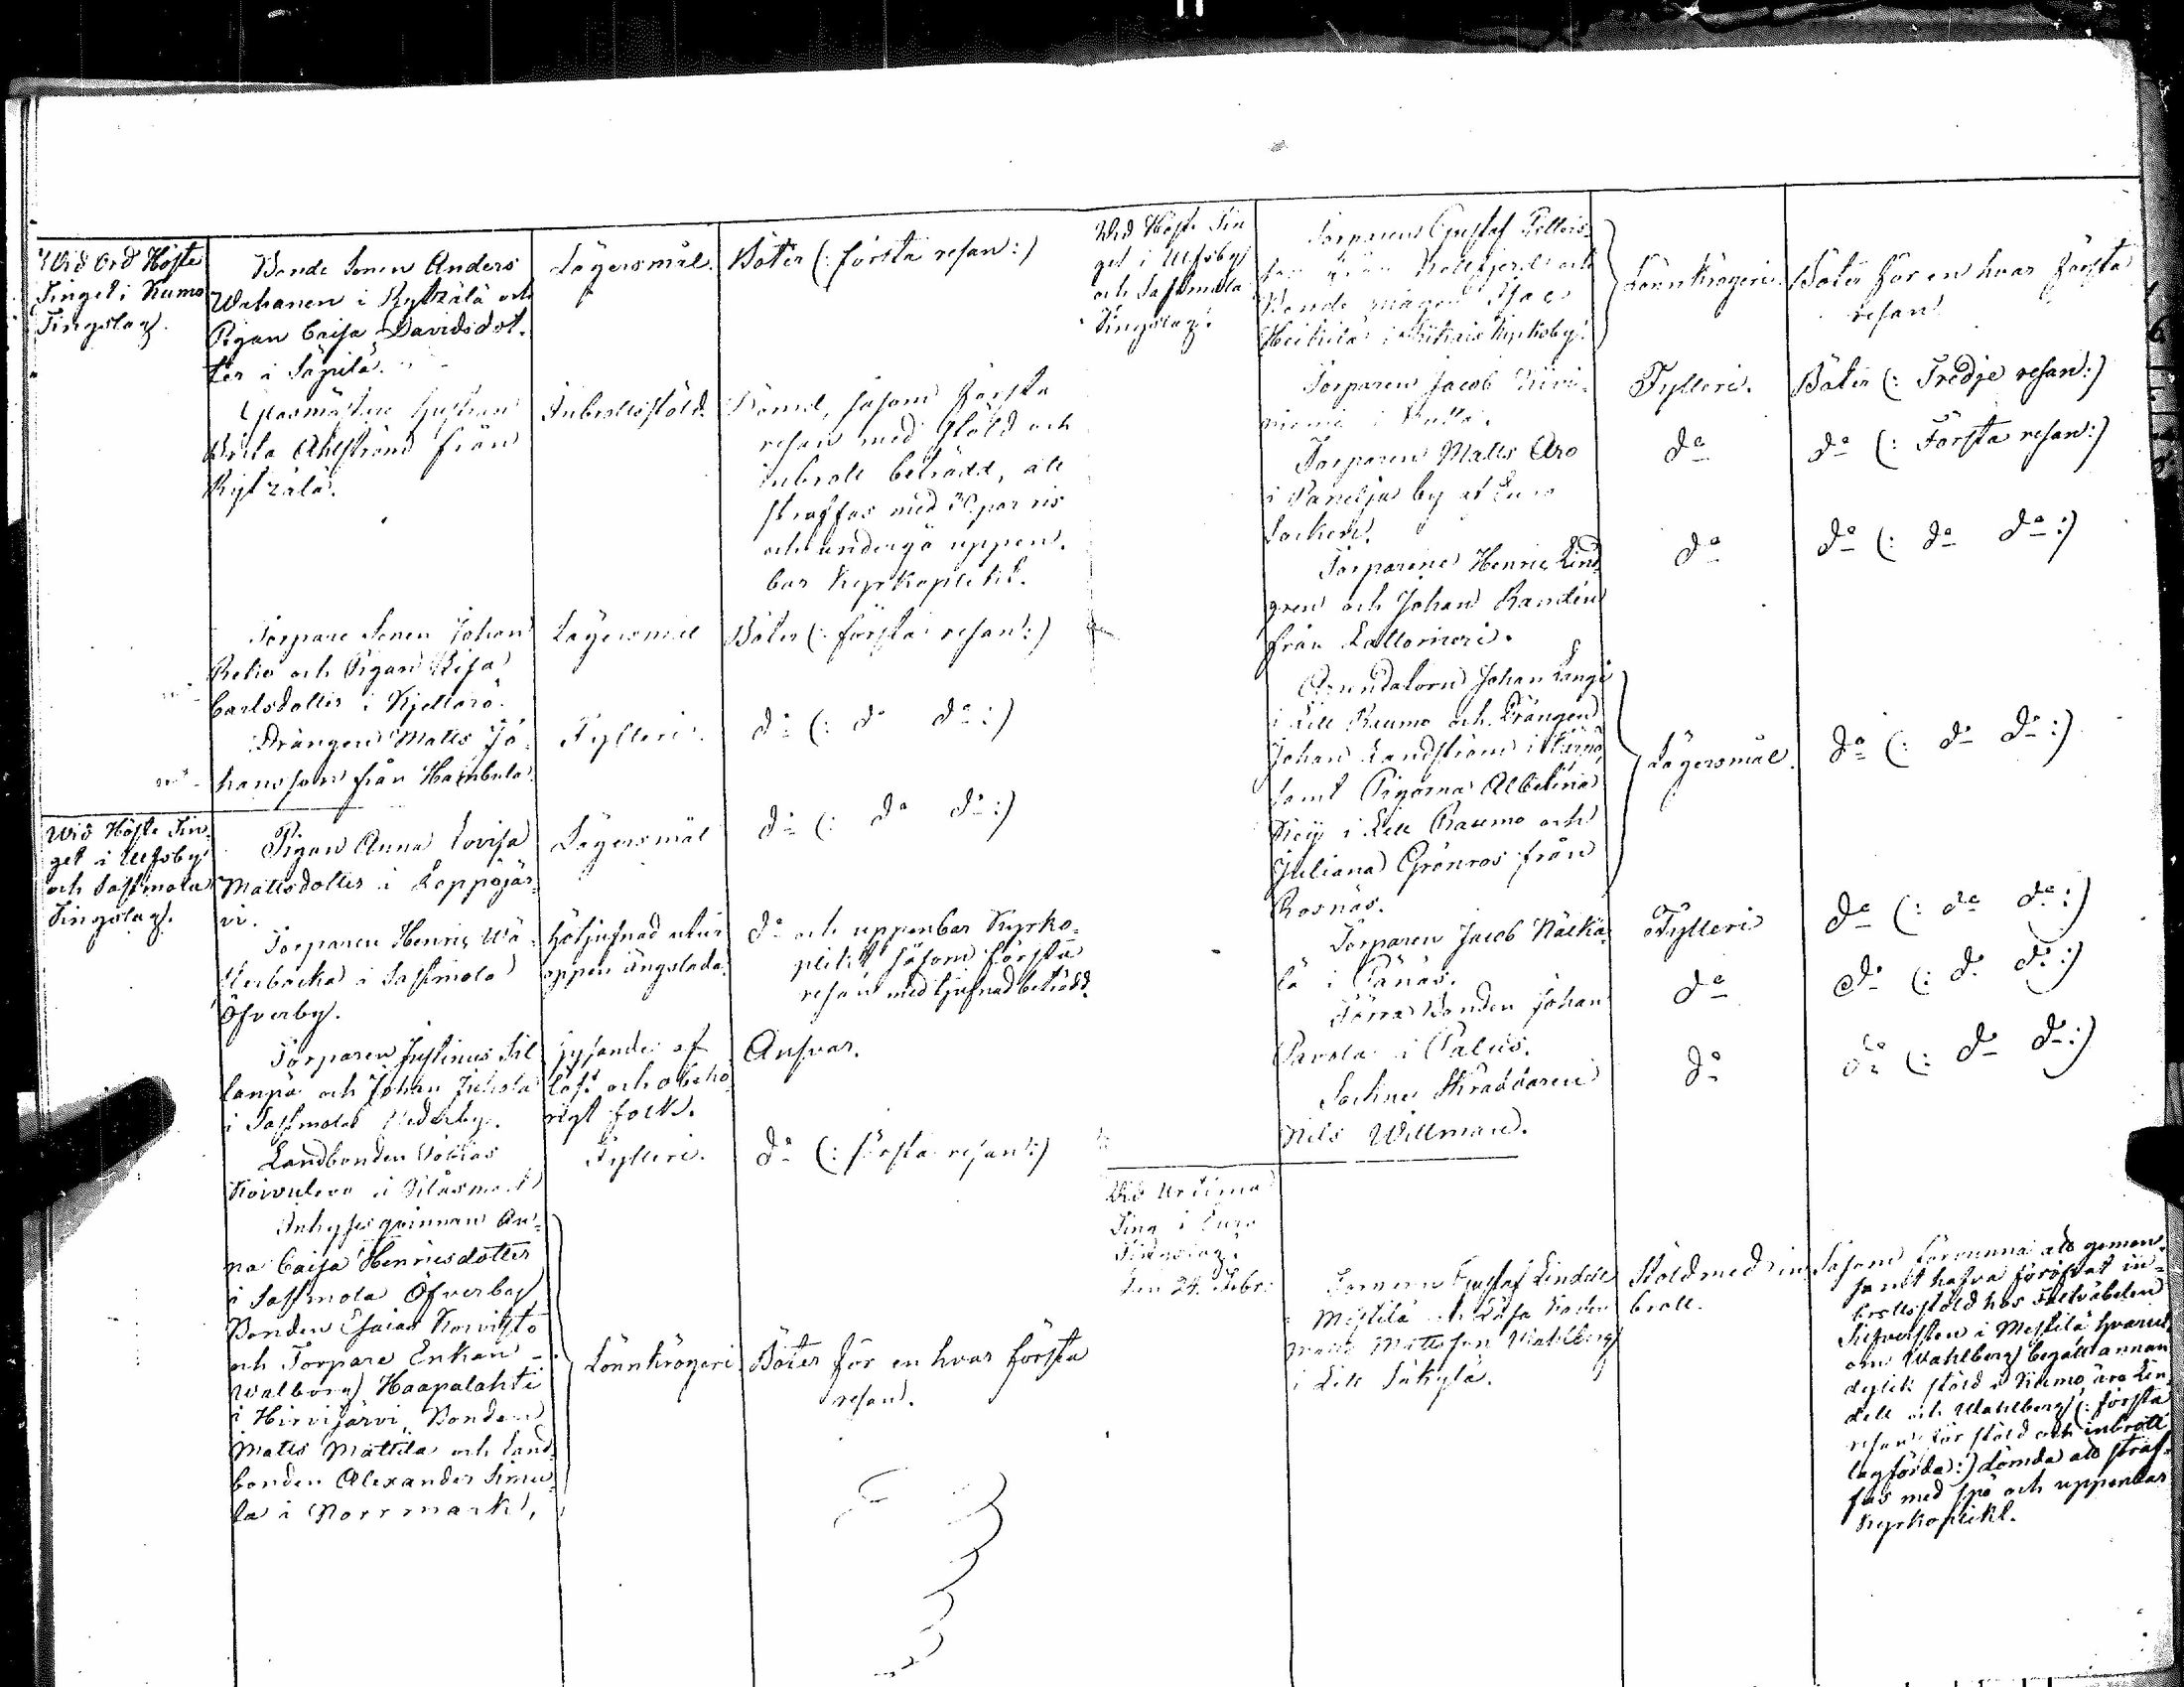 Wid Ord Höste
Tinget i Kumo
Tingslag.
Bonde Sonen Anders
Wahanen i Kyttälä och
Pigan Caisa Davidsdot-
ter i Säpilä.
Lägersmål.
Böter (: första resan :)
Glasmästare hustrun
Brita Ahlströmd från
Kyttälä.
Inbrottsstöld.
Dömd, såsom första
resan med stöld och
inbrott beträdd, att
straffas med par ris
och undergå uppen-
bar Kyrkoplikt.
Torpare Sonen Johan
Retio och Pigan Lisa
Carlsdotter i Kjettarö.
Lägersmål
Böter (: första resan :)
Drängen Matts Jo-
hansson från Hambula.
Fylleri.
do (: do do :)
Wid Höste Tin-
get i Ulfsby
och Sastmola
Tingslag.
Pigan Anna Lovisa
Mattsdotter i Leppäjär-
vi.
Lägersmål
do (: do do :)
Torparen Henric Wä-
terbacka i Sastmola
Öfverby.
Hötjufnad utur
öppen ängslada.
do och uppenbar Kyrko-
plikt såsom första
resan med tjufnad beträdd.
Torparen Justinus Sil
lanpä och Johan Juhola
i Sastmola Nederby.
hysande af
löst och obehö-
rigt folk.
Ansvar.
Landbonden Tobias
Koivulova i Påsmark
Fylleri.
do (: första resan :)
Inhyses qvinnan An-
na Caisa Henricsdotter
i Sastmola Öfverby
Bonden Esaias Koivisto
och Torpare Enkan
Walborg Haapalahti
i Hirvijärvi, Bonden
Matts Mattila och Land-
bonden Alexander Simu-
la i Norrmark,
Lönnkrögeri
Böter för en hvar första
resan.
Wid Höste Tin
get i Ulfsby
och Sastmola
Tingslag.
Torparen Gustaf Petters-
son från och
Bonde mågen Isac
Heikkilä i Kyrkoby.
Lönnkrögeri.
Böter för en hvar första
resan
Torparen Jacob Nieminiemi
Fylleri.
Böter (: Tredje resan :)
Torparen Matts Aro
i Panelja by af Eura
Socken.
do
do (: Första resan :)
Torparene Henric Lind-
gren och Johan Randen
från Lattomeri.
do
do (: do do :)
Arrendatorn Johan Lange
i Lill Raumo och Drängen
Johan Landström i
samt Pigorna Albertina
i Lill Raumo och
Juliana Grönros från
Rosnäs.
Lägersmål.
do (: do do :)
Torparen Jacob Nälkä-
lä i Pänäs.
Fylleri
do (: do do :)
Förra Bonden Johan
Pavola i Palus.
do
do (: do do :)
Sockne Skräddaren
Nils Willman.
do
do (: do do :)
Wid Urtima
Ting i Eura
Tingslag
den 24 Febr.
Gustaf Lindell
i Mestilä och
Mattsson Wahlberg
i Lill Säkylä.
Stöld med in-
brott.
Såsom förvunna att gemen-
samt hafva föröfvat in-
brottsstöld hos Fältväbelen
Silfversten i Mestilä hvarut-
om Wahlberg begått annan
dylik stöld i Kumo äro Lin-
dell och Wahlberg (: första
resan för stöld och inbrott
lagförda :) dömda att straf-
fas med spö och uppenbar
Kyrkoplikt.